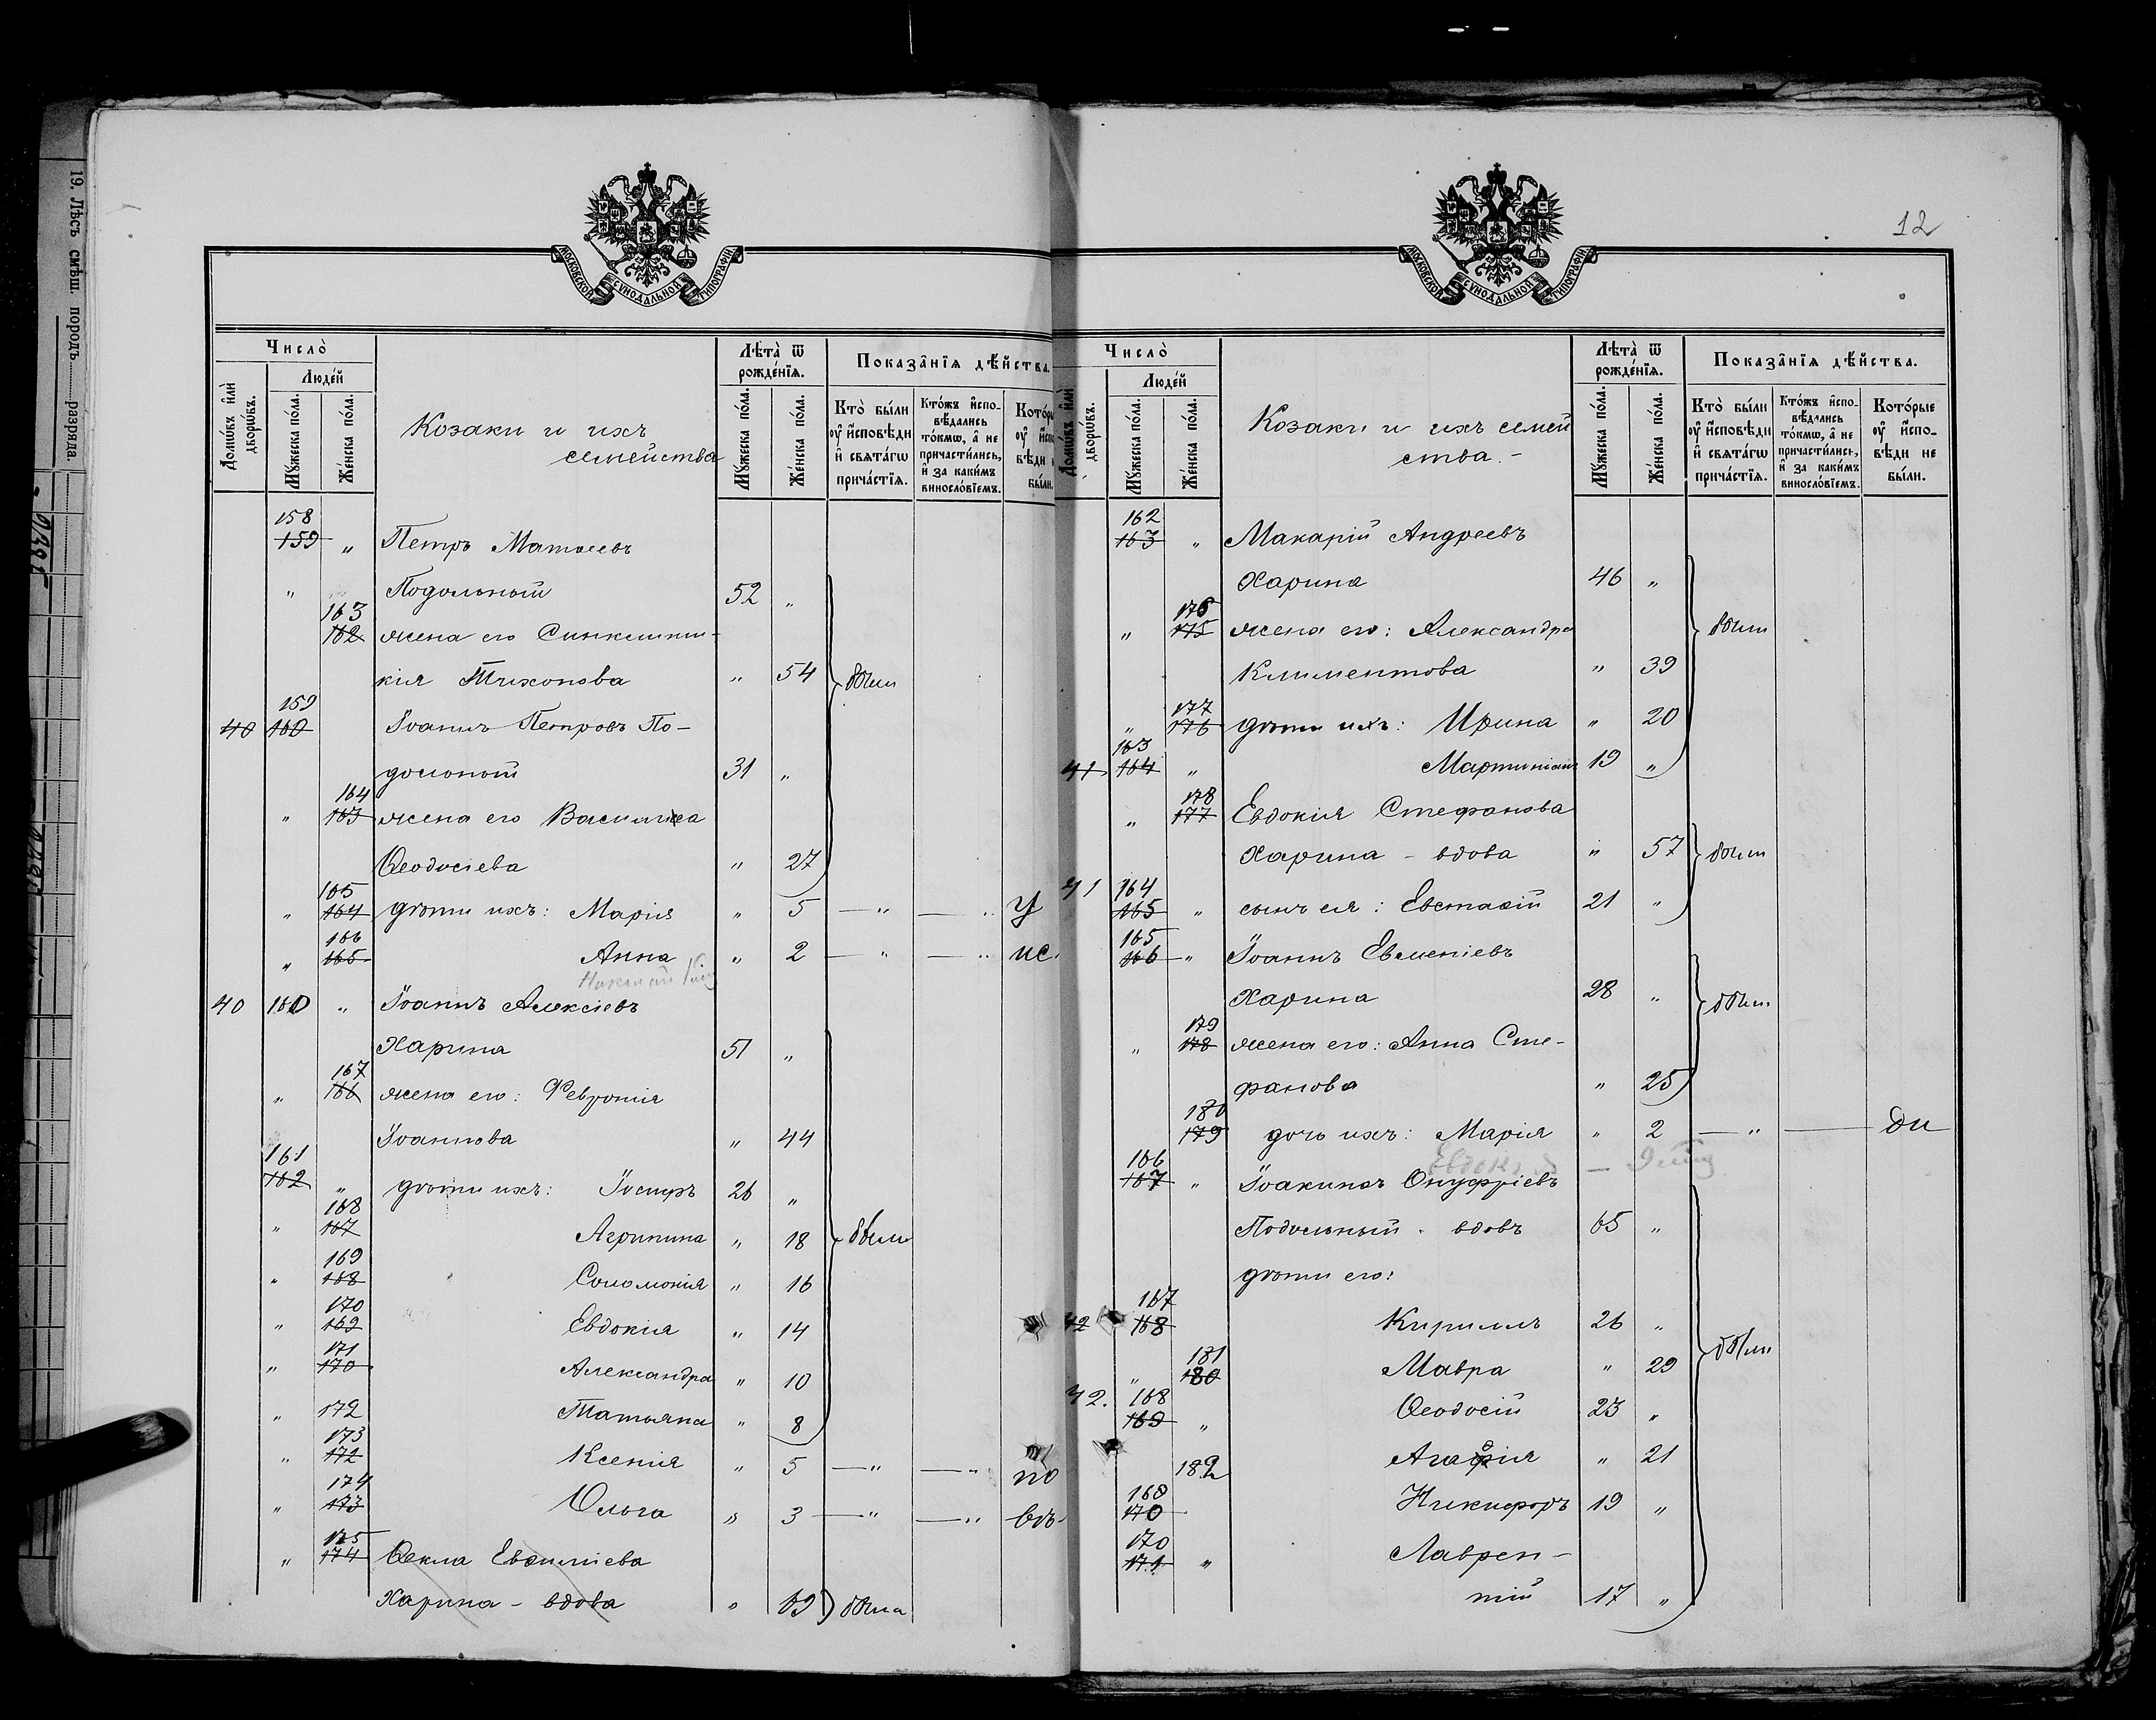 19. Лѣсъ смѣш. породъ разряда.
МОСКОВСКОЙ СѴНОДАЛЬНОЙ ТИПОГРАФІИ
Число̀
Люде́й
Домѡ́въ и҆лѝ дворѡ́въ.
Мꙋ́жеска по́ла.
Же́нска по́ла.
Козаки и ихъ
семейства
Лѣ́та ѿ рожде́нїѧ.
Мꙋ́жеска по́ла.
Же́нска по́ла.
Показа̑нїѧ дѣ́йства.
Кто̀ бы́ли ᲂу҆ и҆сповѣ́ди и҆ свѧта́гѡ прича́стїѧ.
Кто́жъ и҆спо-вѣ́дались то́кмѡ, а҆ не причасти́лись, и҆ за каки́мъ винослові́емъ.
158
159 " Петръ Матѳеевъ
" Подольный 52 "
163
162 жена его Синклити-
кія Тихонова " 54 были
159
40 160 Іоаннъ Петровъ По-
дольный 31 "
164
" 163 жена его Василиса
Ѳеодосіева " 27
165
" 164 дѣти ихъ: Марія " 5 — " — " у
166
" 165 Анна " 2 — " — " ис.
40 160 " Іоаннъ Алексіевъ
Харина 51 "
167
" 166 жена его: Февронія
Іоаннова " 44
161
162 " дѣти ихъ: 26 "
168
" 167 Агрипина " 18 были
169
" 168 Соломонія " 16
170
" 169 Евдокія " 14
171
" 170 Александра " 10
" 172 Татьяна " 8
173
" 172 Ксенія " 5 — " — " по
174
" 173 Ольга " 3 — " — " вѣ-
175
" 174 Ѳекла Евѳиміева
Харина - вдова " 69 была
12
МОСКОВСКОЙ СѴНОДАЛЬНОЙ ТИПОГРАФІИ
Число̀
Люде́й
Домѡ́въ и҆лѝ дворѡ́въ.
Мꙋ́жеска по́ла.
Же́нска по́ла.
Козаки и ихъ семей
ства. -
Лѣ́та ѿ рожде́нїѧ.
Мꙋ́жеска по́ла.
Же́нска по́ла.
Показа̑нїѧ дѣ́йства.
Кто̀ бы́ли ᲂу҆ и҆сповѣ́ди и҆ свѧта́гѡ прича́стїѧ.
Кто́жъ и҆спо-вѣ́дались то́кмѡ, а҆ не причасти́лись, и҆ за каки́мъ винослові́емъ.
Кото́рые ᲂу҆ и҆спо-вѣ́ди не бы́ли.
162
163 " Макарій Андреевъ
Харина 46 "
176
" 175 жена его: Александра были
Климентова " 39
177
" 176 дѣти ихъ: Ирина " 20
163
41 164 " Мартиніанъ 19 "
178
" 177 Евдокія Стефанова
Харина - вдова " 57 были
41 164
165 " сынъ ея: Евстаѳій 21 "
165
166 " Іоаннъ Евменіевъ
Харина 28 " были
179
" 178 жена его: Анна Сте-
фанова " 25
180
179 дочь ихъ: Марія " 2 — " — ди
166
167 " Іоакимъ Онуфріевъ
Подольный - вдовъ 65 "
дѣти его:
167
42 168 Кириллъ 26 "
181
" 180 Мавра " 29 были
42. 168
169 " Ѳеодосій 23 "
182 Агафія " 21
169
170 Никифоръ 19 "
170
171 " Лаврен-
тій 17 "